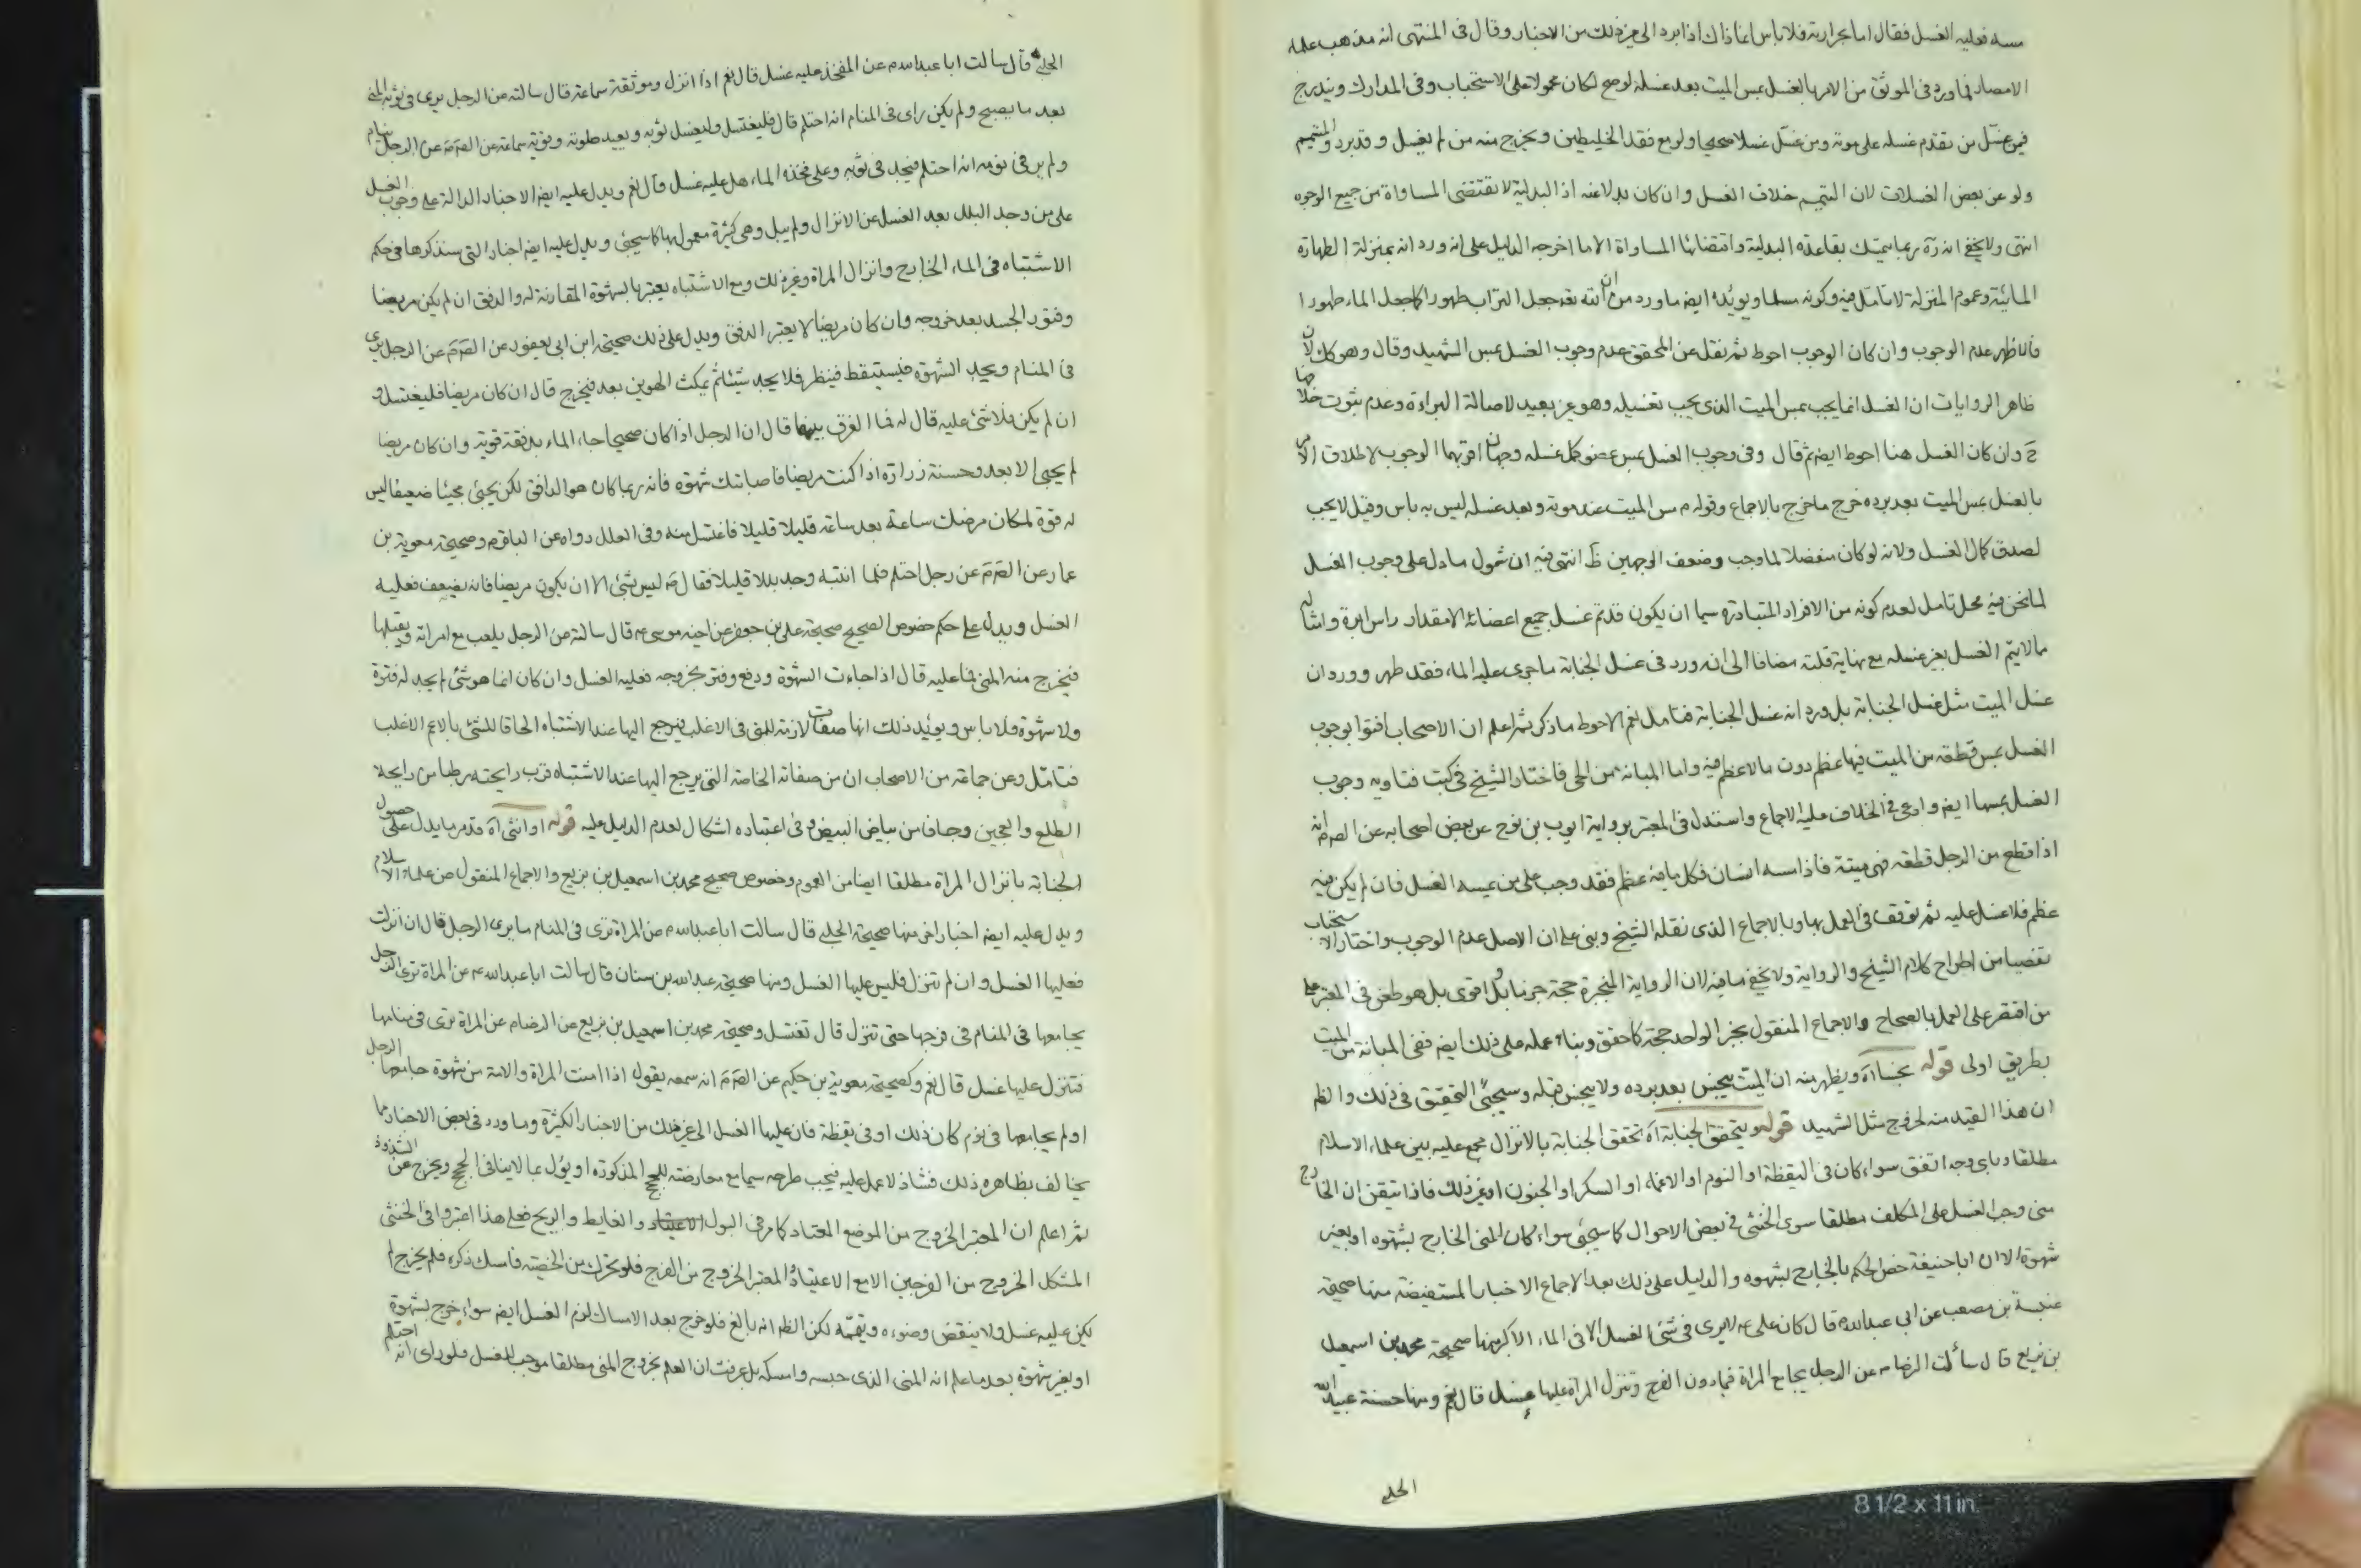 مسه فعليه الغسل فقال اما بحرارته فلا باس انما ذاك اذا برد الى غير ذلك من الاخبار وقال فى المنتهى انه مذهب علماء
الامصار فما ورد فى الموثق من الامر بالغسل بمس الميت بعد غسله لو صح لكان محمولا على الاستحباب وفى المدارك ويندرج
فيمن غسّل من تقدم غسله على موته ومن غسّل غسلا صحيحا ولو مع فقد الخليطين ويخرج منه من لم يغسل وقد برد والمتيمم
ولو عن بعض الغسلات لان التيمم خلاف الغسل وان كان بدلا عنه اذ البدلية لا تقتضى المساواة من جميع الوجوه
انتهى ولا يخفى انه ره ربما يتمسك بقاعدة البدلية واقتضائها المساواة الا ما اخرجه الدليل على انه ورد انه بمنزلة الطهارة
المائية وعموم المنزلة لا تامل فيه وكونه مسلما ويويده ايضه ما ورد من ان الله تعه جعل التراب طهورا كما جعل الماء طهورا
فالاظهر عدم الوجوب وان كان الوجوب احوط ثم نقل عن المحقق عدم وجوب الغسل بمس الشهيد وقال وهو كك لان
ظاهر الروايات ان الغسل انما يجب بمس الميت الذى يجب تغسيله وهو غير بعيد لاصالة البراءة وعدم ثبوت خلافها
ح وان كان الغسل هنا احوط ايضه ثم قال وفى وجوب الغسل بمس عضو كمل غسله وجهان اقربهما الوجوب لاطلاق الامر
بالغسل بمس الميت بعد برده خرج ما خرج بالاجماع وقوله م مس الميت عند موته وبعد غسله ليس به باس وقيل لا يجب
لصدق كمال الغسل ولانه لو كان منفصلا لما وجب وضعف الوجهين ظ انتهى فيه ان شمول ما دل على وجوب الغسل
لما نحن فيه محل تامل لعدم كونه من الافراد المتبادرة سيما ان يكون قد تم غسل جميع اعضائه الا مقدار راس ابرة وامثاله
مالا يتم الغسل بغير غسله مع نهاية قلته مضافا الى انه ورد فى غسل الجنابة ما جرى عليه الماء فقد طهر وورد ان
غسل الميت مثل غسل الجنابة بل ورد انه غسل الجنابة فتامل نعم الاحوط ما ذكر ثم اعلم ان الاصحاب افتوا بوجوب
الغسل بمس قطعة من الميت فيها عظم دون مالا عظم فيه واما المبانة من الحى فاختار الشيخ فى كتب فتاويه وجوب
الغسل بمسها ايضه وادعى فى الخلاف عليه الاجماع واستدل فى المعتبر برواية ايوب بن نوح عن بعض اصحابه عن الصه م انه
اذا قطع من الرجل قطعة فهى ميتة فاذا مسه انسان فكل ما فيه عظم فقد وجب على من يمسه الغسل فان لم يكن فيه
عظم فلا غسل عليه ثم توقف فى العمل بها وبالاجماع الذى نقله الشيخ وبنى على ان الاصل عدم الوجوب واختار الاستحباب
تفصيا من اطراح كلام الشيخ والرواية ولا يخفى ما فيه لان الرواية المنجبرة حجة جزما بل اقوى بل هو طعن فى المعتبر على
من اقتصر على العمل بالصحاح والاجماع المنقول بخبر الواحد حجة كما حقق وبناء عمله على ذلك ايضه ففى المبانة من الميت
بطريق اولى قوله نجسا اه ويظهر منه ان الميت ينجس بعد برده ولا ينجس قبله وسيجئ التحقيق فى ذلك والظم
ان هذا القيد منه لخروج مثل الشهيد قوله ويتحقق الجنابة اه تحقق الجنابة بالانزال مجمع عليه بين علماء الاسلام
مطلقا وباى وجه اتفق سواء كان فى اليقظة او النوم او الاغماء او السكر او الجنون او غير ذلك فاذا تيقن ان الخارج
منى وجب الغسل على المكلف مطلقا سوى الخنثى فى بعض الاحوال كما سيجئ سواء كان المنى الخارج بشهوة او بغير
شهوة الا ان ابا حنيفة خص الحكم بالخارج بشهوة والدليل على ذلك بعد الاجماع الاخبار المستفيضة منها صحيحة
عنبسة بن مصعب عن ابى عبد الله م قال كان على عه لا يرى فى شئ الغسل الا فى الماء الاكبر ومنها صحيحة محمد بن اسمعيل
بن بزيع قال سألت الرضا م عن الرجل يجامع المراة فيما دون الفرج وتنزل المراة عليها غسل قال نعم ومنها حسنة عبيد الله
الحلبى
الحلبى قال سالت ابا عبد الله م عن المفخذ عليه غسل قال نعم اذا انزل وموثقة سماعة قال سالته عن الرجل يرى فى ثوبه المنى
بعد ما يصبح ولم يكن راى فى المنام انه احتلم قال فليغتسل وليغسل ثوبه ويعيد صلوته وقوية سماعة عن الصه م عن الرجل ينام
ولم ير فى نومه انه احتلم فيجد فى ثوبه وعلى فخذه الماء هل عليه غسل قال نعم ويدل عليه ايضه الاخبار الدالة على وجوب الغسل
على من وجد البلل بعد الغسل عن الانزال ولم يبل وهى كثيرة معمول بها كما سيجئ ويدل عليه ايضه اخبار التى سنذكرها فى حكم
الاشتباه فى الماء الخارج وانزال المراة وغير ذلك ومع الاشتباه يعتبر بالشهوة المقارنة له والدفق ان لم يكن مريضا
وفتور الجسد بعد خروجه وان كان مريضا لا يعتبر الدفق ويدل على ذلك صحيحة ابن ابى يعفور عن الصه م عن الرجل يرى
فى المنام ويجد الشهوة فيستيقظ فينظر فلا يجد شيئا ثم يمكث الهوين بعد فيخرج قال ان كان مريضا فليغتسل و
ان لم يكن فلا شئ عليه قال له فما الفرق بينهما قال ان الرجل اذا كان صحيحا جاء الماء بدفقة قوية وان كان مريضا
لم يجئ الا بعد وحسنة زرارة اذا كنت مريضا فاصابتك شهوة فانه ربما كان هو الدافق لكن يجئ مجيئا ضعيفا ليس
له قوة لمكان مرضك ساعة بعد ساعة قليلا قليلا فاغتسل منه وفى العلل رواه عن الباقر م وصحيحة معوية بن
عمار عن الصه م عن رجل احتلم فلما انتبه وجد بللا قليلا فقال م ليس بشئ الا ان يكون مريضا فانه يضعف فعليه
الغسل ويدل على حكم خصوص الصحيح صحيحة على بن جعفر عن اخيه موسى عه قال سالته عن الرجل يلعب مع امراته ويقبلها
فيخرج منه المنى فما عليه قال اذا جاءت الشهوة ودفع وفتر بخروجه فعليه الغسل وان كان انما هو شئ لم يجد له فترة
ولا شهوة فلا باس ويويد ذلك انها صفات لازمة للمنى فى الاغلب فيرجع اليها عند الاشتباه الحاقا للشئ بالاعم الاغلب
فتامّل وعن جماعة من الاصحاب ان من صفاته الخاصة التى يرجع اليها عند الاشتباه قرب رايحته رطبا من رايحة
الطلع والعجين وجافا من بياض البيض وفى اعتباده اشكال لعدم الدليل عليه قوله او انثى اه قد مر ما يدل على حصول
الجنابة بانزال المراة مطلقا ايضا من العموم وخصوص صحيح محمد بن اسمعيل بن بزيع والاجماع المنقول من علماء الاسلام
ويدل عليه ايضه اخبار اخر منها صحيحة الحلبى قال سالت ابا عبد الله م عن المراة ترى فى المنام ما يرى الرجل قال ان انزلت
فعليها الغسل وان لم تنزل فليس عليها الغسل ومنها صحيحة عبد الله بن سنان قال سالت ابا عبد الله عه عن المراة ترى الرجل
يجامعها فى المنام فى فرجها حتى تنزل قال تغتسل وصحيحة محمد بن اسمعيل بن بزيع عن الرضا م عن المراة ترى فى منامها
فتنزل عليها غسل قال نعم وكصحيحة معوية بن حكيم عن الصه م انه سمعه يقول اذا امنت المراة والامة من شهوة جامعها الرجل
او لم يجامعها فى نوم كان ذلك او فى يقظة فان عليها الغسل الى غير ذلك من الاخبار الكثيرة وما ورد فى بعض الاخبار مما
يخالف بظاهره ذلك فشاذ لا عمل عليه فيجب طرحه سيما مع معارضته للحجج المذكورة او يؤل بما لا ينافى الحجج ويخرج عن الشذوذ
ثم اعلم ان المعتبر الخروج من الموضع المعتاد كما مر فى البول والغايط والريح فعلى هذا اعتبروا فى الخنثى
المشكل الخروج من الفرجين الا مع الاعتياد المعتبر الخروج من الفرج فلو تحرك من الخصية فامسك ذكره فلم يخرج لم
يكن عليه غسل ولا ينقض وضوءه وتيممه لكن الظم انه بالغ فلو خرج بعد الامساك لزم الغسل ايضه سواء خرج بشهوة
او بغير شهوة بعد ما علم انه المنى الذى حبسه وامسكه بل عرفت ان العلم بخروج المنى مطلقا موجب للغسل فلو راى انه احتلم
8 1/2 x 11 in.